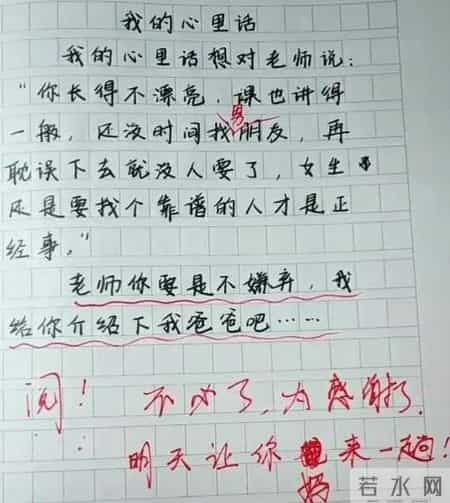 我的心里话
我的心里话想对老师说：
“你长得不漂亮，课也讲得
一般，还没时间找男朋友，再
耽误下去就没人要了，女生
还是要找个靠谱的人才是正
经事。”
老师你要是不嫌弃，我
给你介绍下我爸爸吧……
阅！ 不必了，为师谢了，
明天让你妈来一趟！
若水网